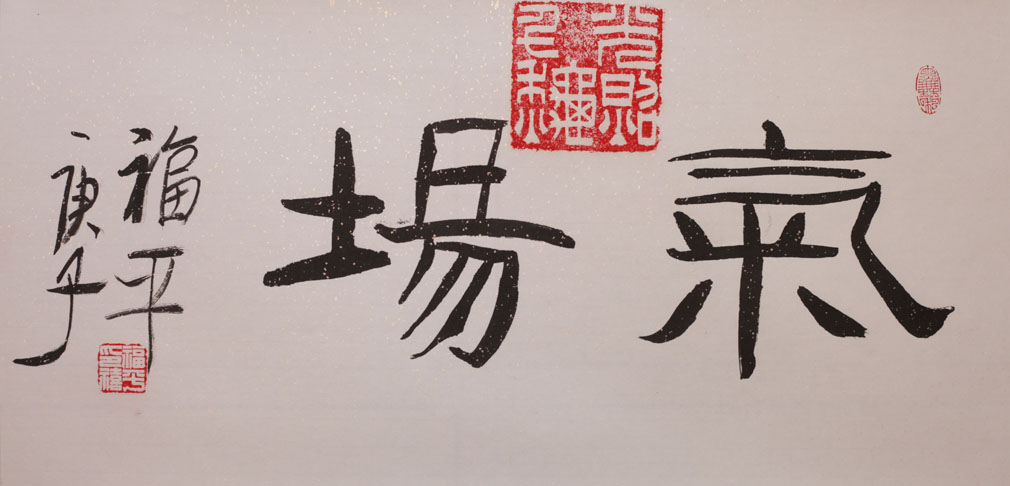 氣場
福平
庚子